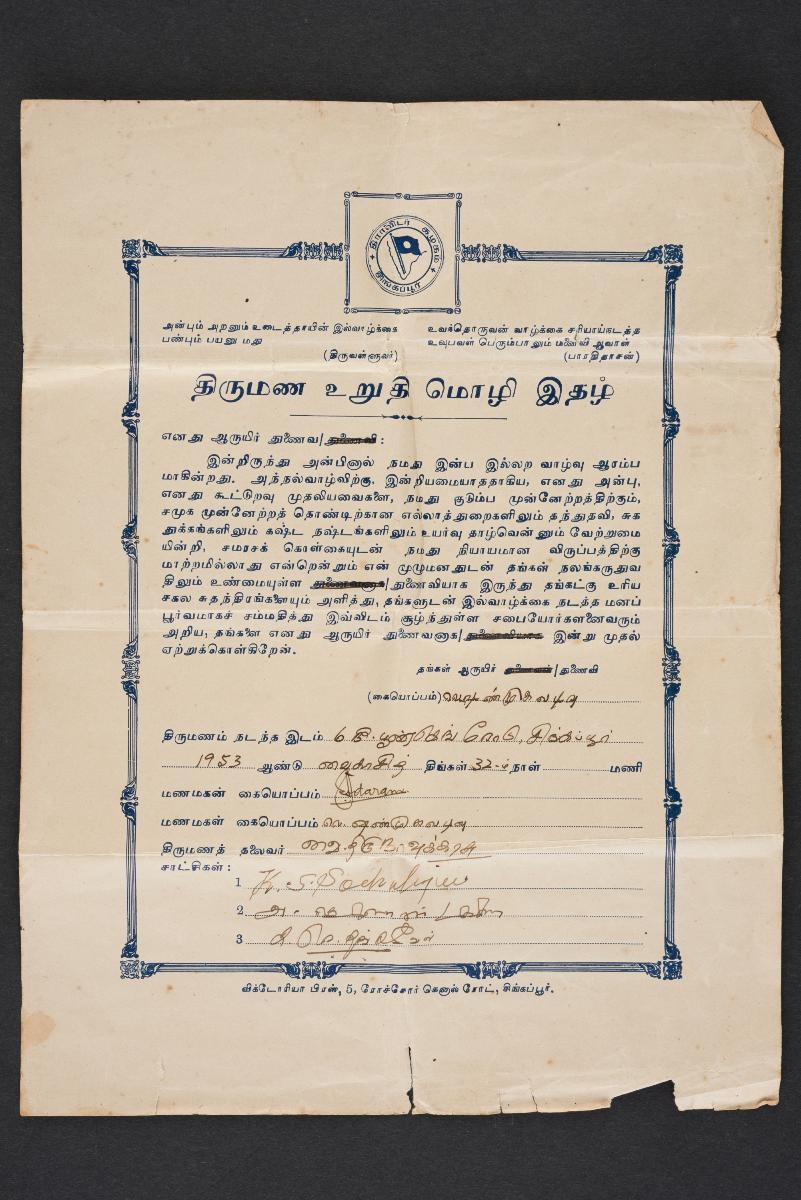 திராவிடர் கழகம்
சிங்கப்பூர்
அன்பும் அறனும் உடைத்தாயின் இல்வாழ்க்கை
பண்பும் பயனு மது
(திருவள்ளுவர்)
உவந்தொருவன் வாழ்க்கை சரியாய்நடத்த
உவுபவள் பெரும்பாலும் மனைவி ஆவாள்
(பாரதிதாசன்)
திருமண உறுதி மொழி இதழ்
எனது ஆருயிர் துணைவ/துணைவி :
இன்றிருந்து அன்பினால் நமது இன்ப இல்லற வாழ்வு ஆரம்ப
மாகின்றது. அந்நல்வாழ்விற்கு, இன்றியமையாததாகிய, எனது அன்பு,
எனது கூட்டுறவு முதலியவைகளை, நமது குடும்ப முன்னேற்றத்திற்கும்,
சமுக முன்னேற்றத் தொண்டிற்கான எல்லாத்துறைகளிலும் தந்துதவி, சுக
துக்கங்களிலும் கஷ்ட நஷ்டங்களிலும் உயர்வு தாழ்வென்னும் வேற்றுமை
யின்றி, சமரசக் கொள்கையுடன் நமது நியாயமான விருப்பத்திற்கு
மாற்றமில்லாது என்றென்றும் என் முழுமனதுடன் தங்கள் நலங்கருதுவ
திலும் உண்மையுள்ள துணைவனாக/துணைவியாக இருந்து தங்கட்கு உரிய
சகல சுதந்திரங்களையும் அளித்து, தங்களுடன் இல்வாழ்க்கை நடத்த மனப்
பூர்வமாகச் சம்மதித்து இவ்விடம் சூழ்ந்துள்ள சபையோர்களனைவரும்
அறிய, தங்களை எனது ஆருயிர் துணைவனாக/துணைவியாக இன்று முதல்
ஏற்றுக்கொள்கிறேன்.
தங்கள் ஆருயிர் துணைவன்/துணைவி
(கையொப்பம்)
திருமணம் நடந்த இடம் சிங்கப்பூர்
1953 ஆண்டு வைகாசித் திங்கள் 32-ம் நாள் மணி
மணமகன் கையொப்பம்
மணமகள் கையொப்பம்
திருமணத் தலைவர்
சாட்சிகள் :
1
2
3
விக்டோரியா பிரஸ், 5, ரோச்சோர் கெனால் ரோட், சிங்கப்பூர்.